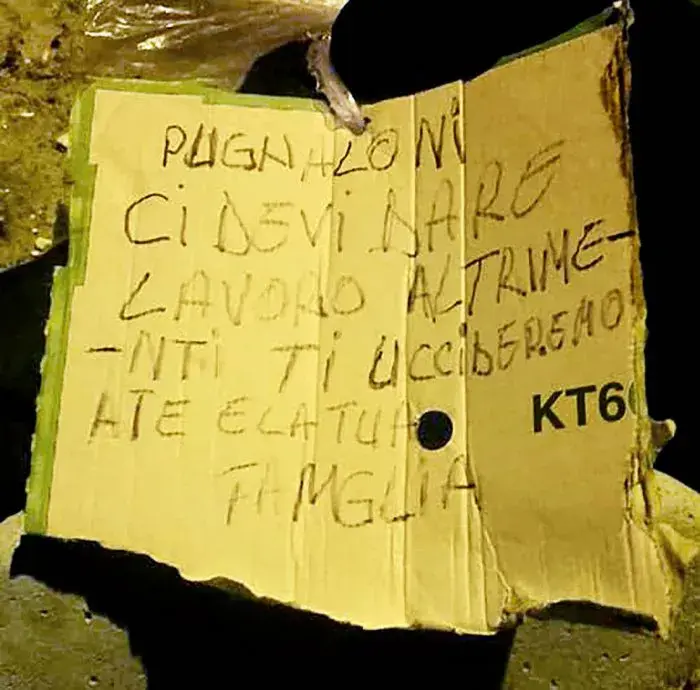 PUGNALONI
Ci DEVi DARE
LAVORO ALTRIME-
-NTi Ti UCCiDEREMO
KT6
ATE E LA TUA
FAMGLIA